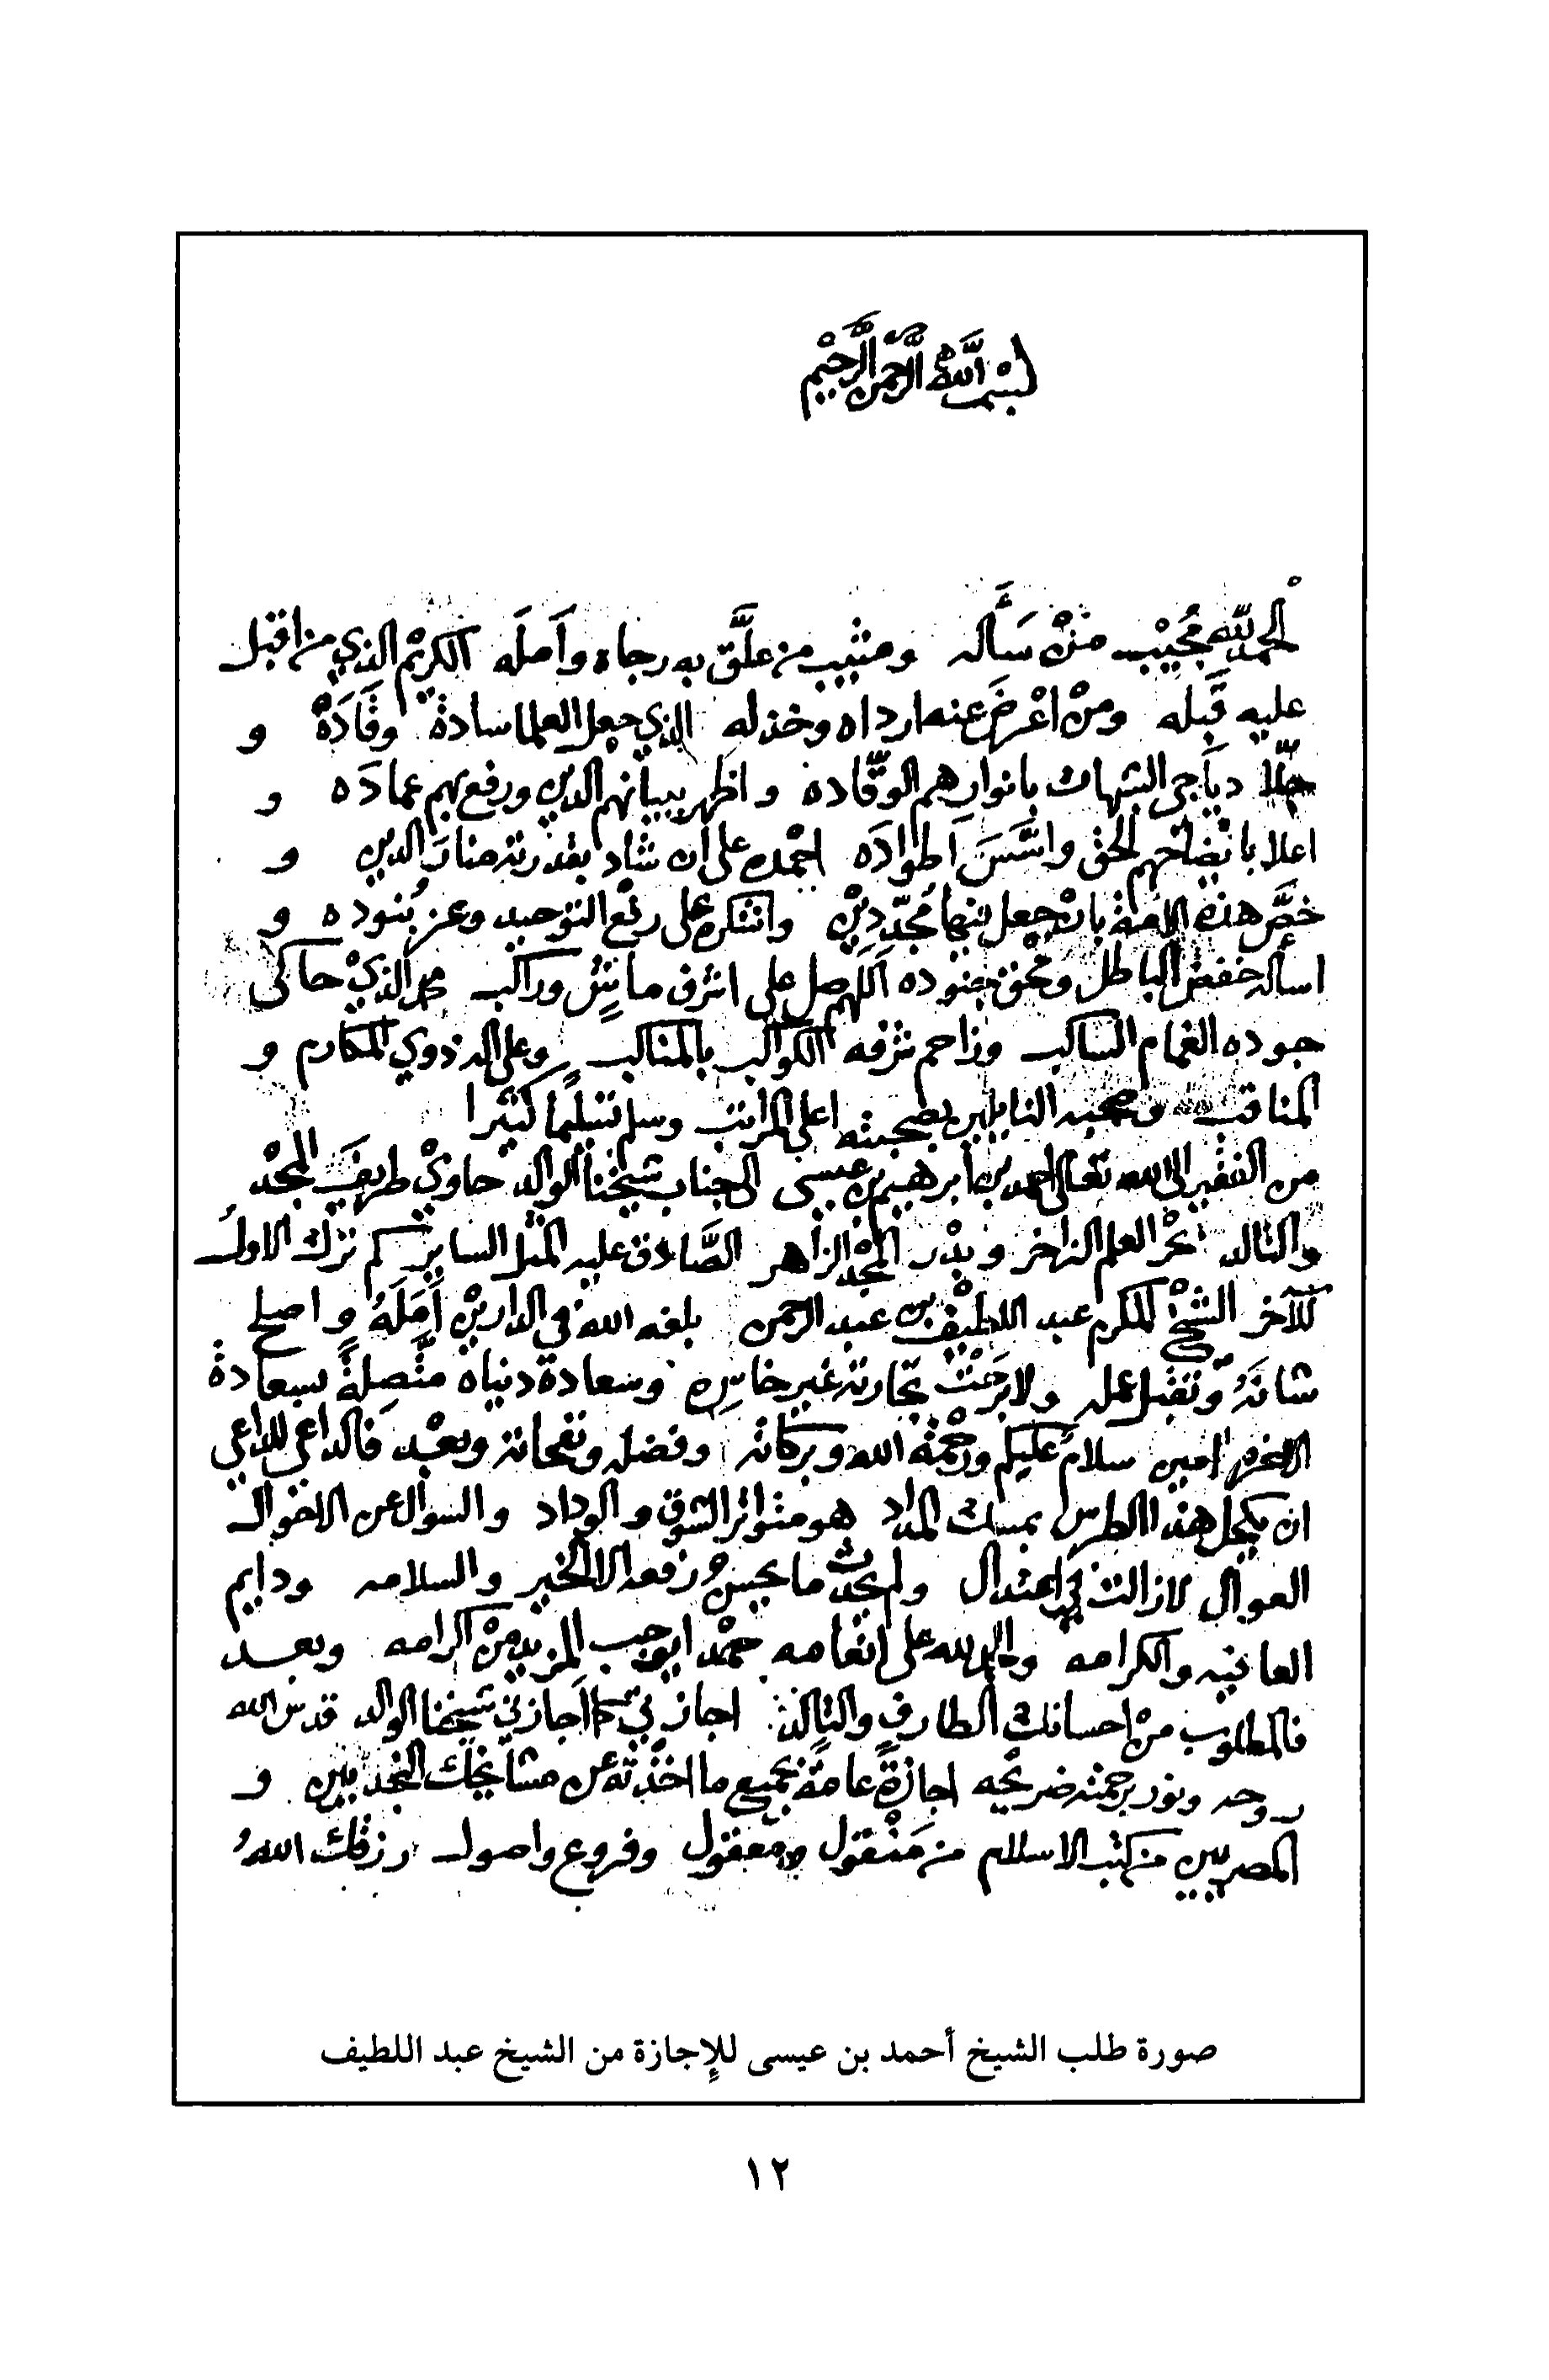 بسم الله الرحمن الرحيم
الحمد لله مُجيْب منْ سَأَله ومثيب من علَّق به رجاه وأَملَه الكريْم الذي من اقبل
عليه قَبله ومنْ اعْرضَ عنه ارداه وخذله الذي جعل العلما سادة وقَادَةْ و
جلّا دياَجي الشبهات بانوارهم الوقّاده واظهر ببيانهم الدين ورفع بهم عمادَه و
اعلا باتضاحهم الحق واسَّسَ اَطوادَه احْمده على أن شاد بقدرته منارَ الدين و
خصَّ هذه الامة بان جعل فيها مُجدّديْن واشكره على رفع التوحيد وعز بُنوده و
اسأله خفض الباطل ومحق جنوده اَللهم صل على اشرف ماشٍ وراكب محمد الذيْ حاكى
جوده الغمام الساكب وزاحم شرفه الكواكب بالمناكب وعلى اله ذوي المكارم و
المناقب وصحبه النايلين بصحبته اعلى المراتب وسلم تسليمًا كثيرا
من الفقير الى الله تعالى احمد بن ابرهيم بن عيسى الى جناب شيخنا الوالد حاويْ طريف المجْد
والتالد بحْر العلم الزاخر وبدْر المجْد الزاهر الصَّادق عليه المثل الساير كم ترك الاولُ
للآخر الشيْخ المكرم عبد اللطيْف بن عبد الرحمن بلغه الله في الداريْن أَمَلَهُ واصلح
شانَهُ وتقبّل عمله ولا برحَتْ تجارته غير خاسِره وسعادة دنياه متَّصِلةً بسعادة
الاخره امين سلامٌ عليكم ورحْمة الله وبركاته وفضله ونفحاته وبعْد فالداعي للداعي
ان يكحل هذا الطرس بمسك المداد هو متواتر الشوق والوداد والسوال عن الاحوال
العوال لازالت في اعتدال ولم يحْدث ما يحسن رفعه الا الخير والسلامه ودايم
العافيه والكرامه والحمد لله على انعامه حمْدا يوجب المزيد من اكرامه وبعد
فالمطلوب منْ احسانك الطارف والتالد اجازتي كما اَجازني شيخنا الوالد قدس الله
روحه ونور برحمته ضريحه اجازةً عامةً بجميع ما اخذْته عن مشايخك النجديين و
المصريين من كتب الاسلام من مَنْقول ومعقول وفروع واصول رزقك اللهُ
صورة طلب الشيخ أحمد بن عيسى للإجازة من الشيخ عبد اللطيف
١٢